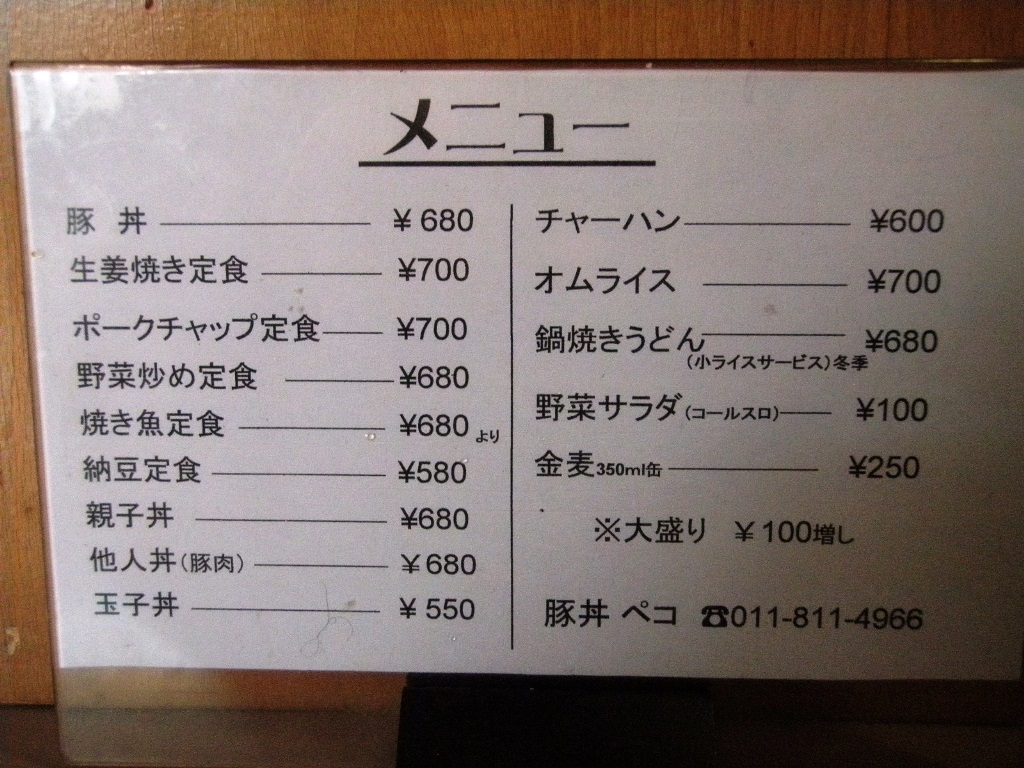 メニュー
豚 丼 ¥ 680
生姜焼き定食 ¥700
ポークチャップ定食 ¥700
野菜炒め定食 ¥680
焼き魚定食 ¥680 より
納豆定食 ¥580
親子丼 ¥680
他人丼(豚肉) ¥ 680
玉子丼 ¥ 550
チャーハン ¥600
オムライス ¥700
鍋焼きうどん ¥680
(小ライスサービス)冬季
野菜サラダ(コールスロ) ¥100
金麦350ml缶 ¥250
※大盛り ¥ 100増し
豚丼 ペコ ☎011-811-4966